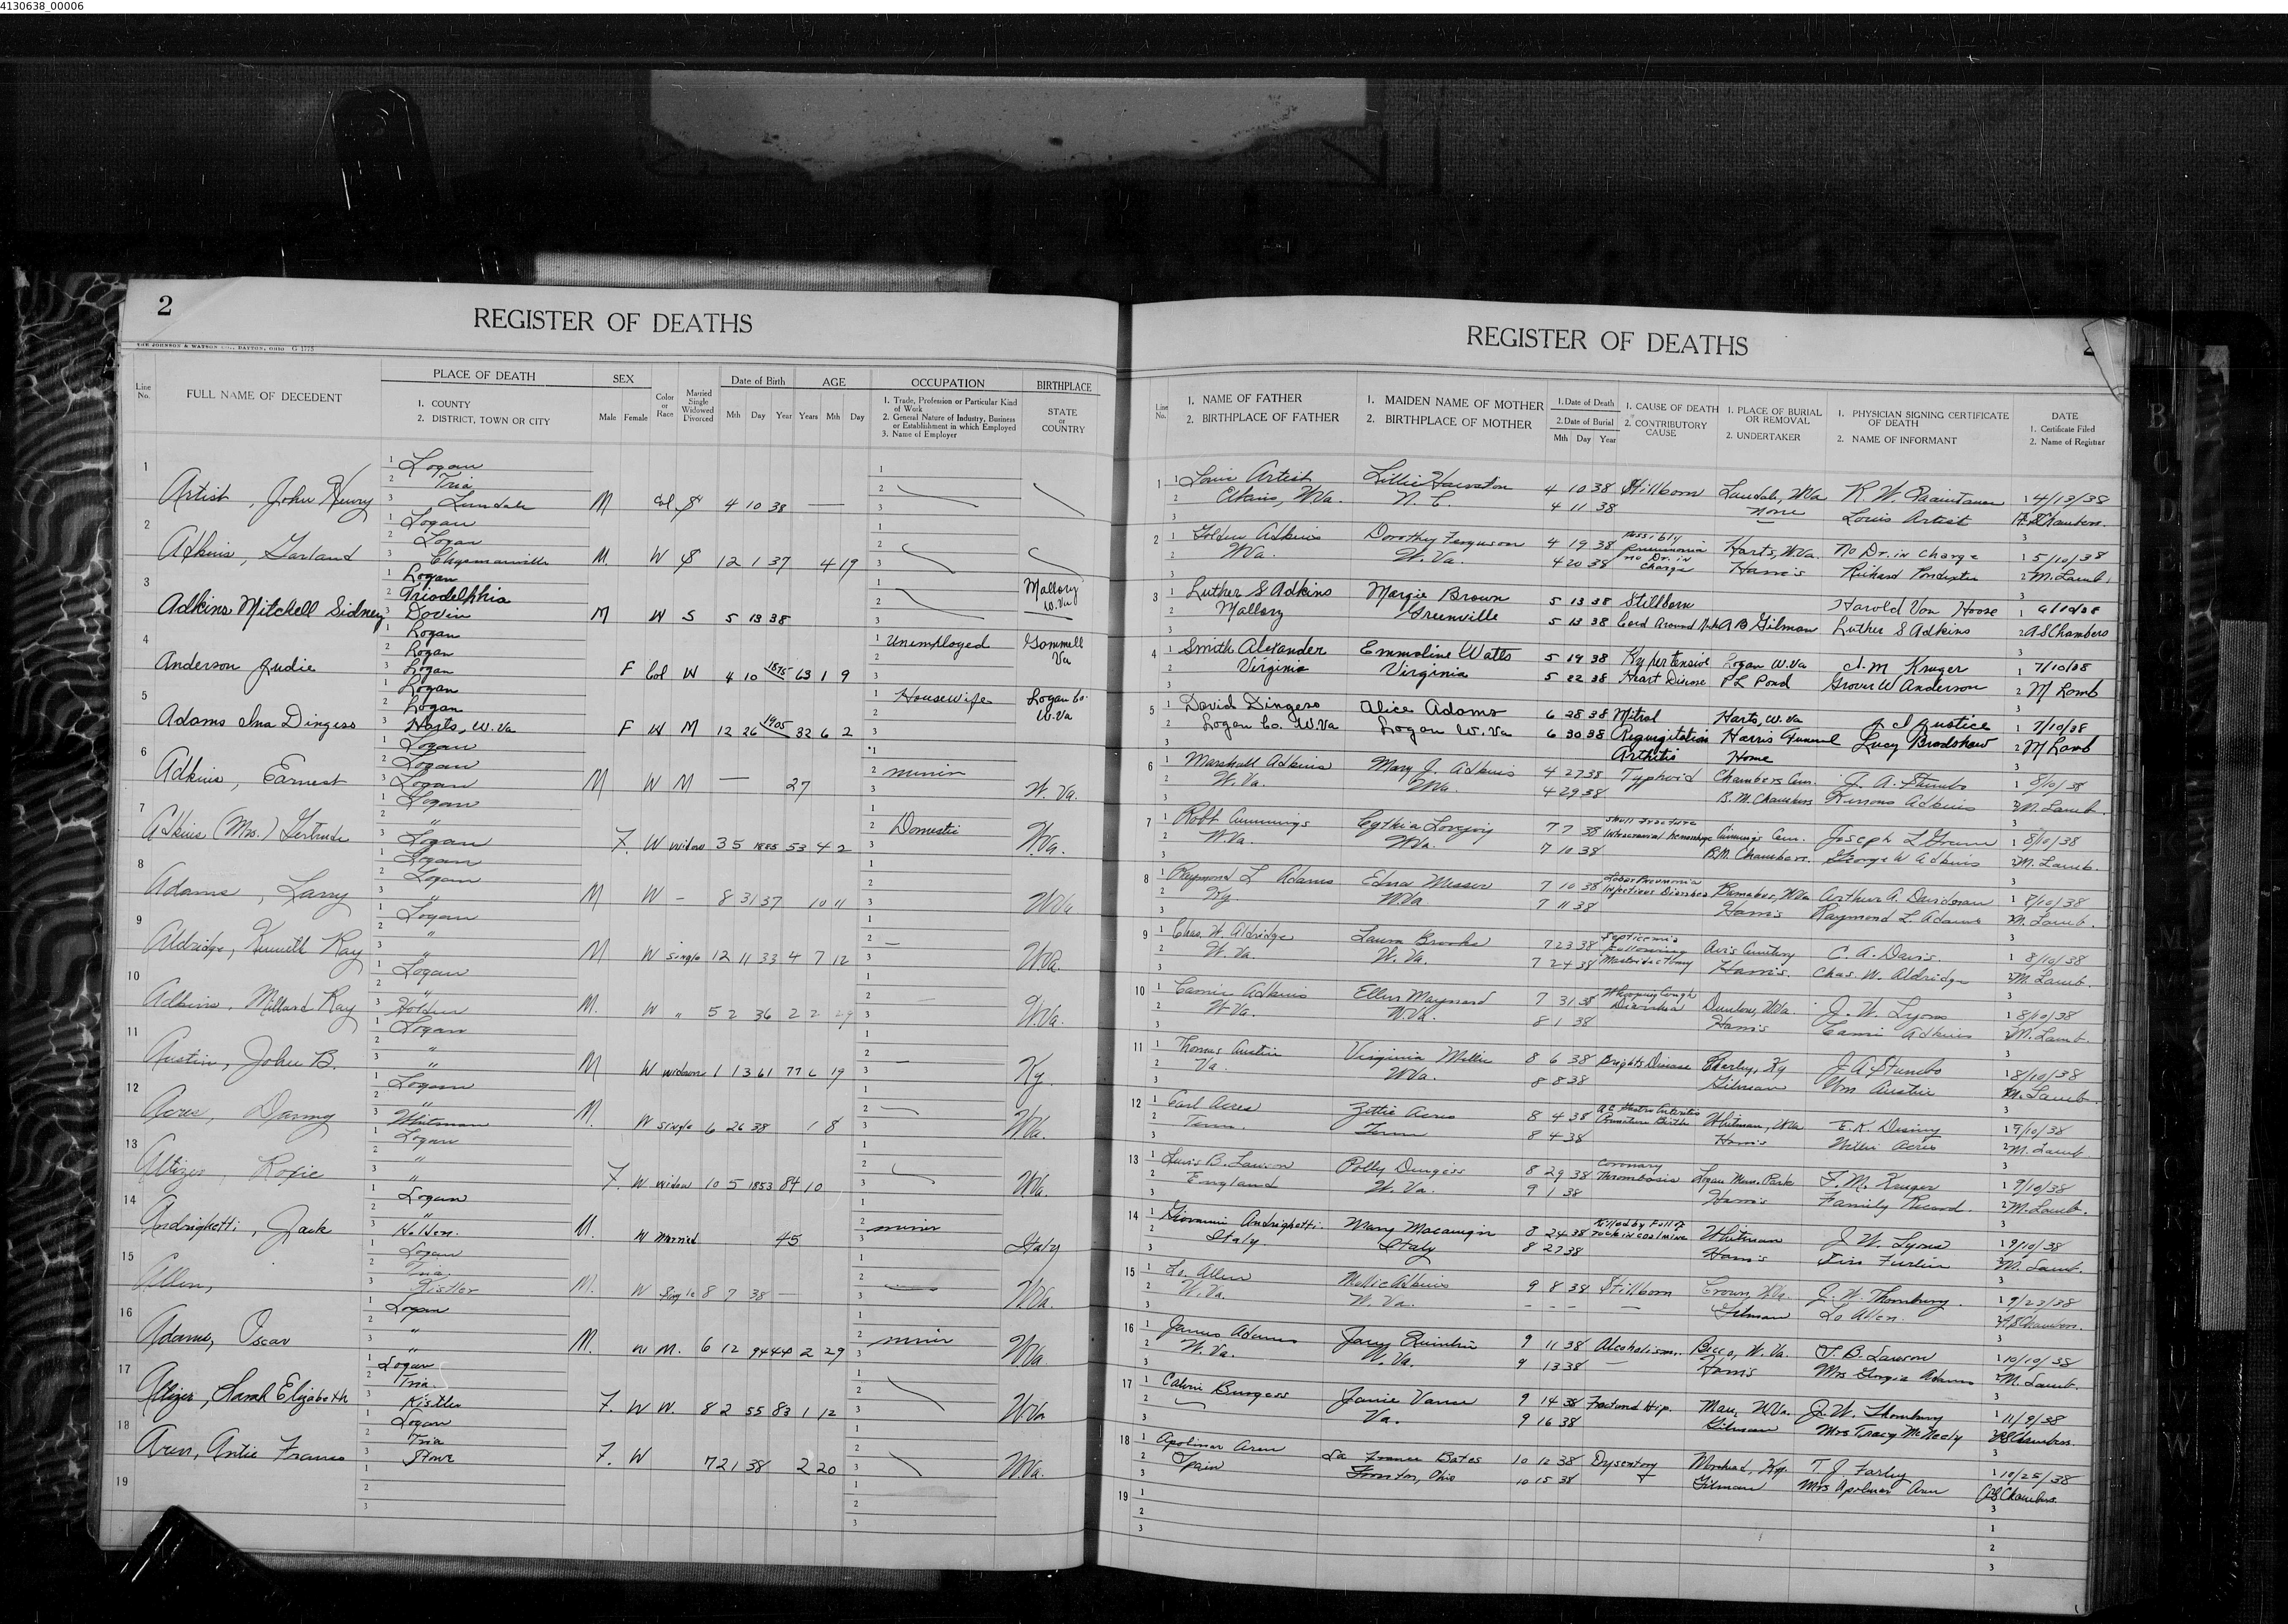 4130638_00006
2
REGISTER OF DEATHS
THE JOHNSON & WATSON CO., DAYTON, OHIO G 1773
Line No.
FULL NAME OF DECEDENT
PLACE OF DEATH
1. COUNTY
2. DISTRICT, TOWN OR CITY
SEX
Male Female
Color or Race
Married Single Widowed Divorced
Date of Birth
Mth Day Year
AGE
Years Mth Day
OCCUPATION
1. Trade, Profession or Particular Kind of Work
2. General Nature of Industry, Business or Establishment in which Employed
3. Name of Employer
BIRTHPLACE
STATE or COUNTRY
1 Artist, John Henry Logan Tria Lundale M Col S 4 10 38
2 Adkins, Garland Logan Logan M W S 12 1 37 4 19
3 Adkins Mitchell Sidney Logan Triadelphia Davin M W S 5 13 38 Mallory W.Va
4 Anderson Judie Logan Logan Logan F Col W 4 10 1875 63 1 9 Unemployed Va
5 Adams Ina Dingess Logan Logan Harts, W.Va F W M 12 26 1905 32 6 2 Housewife Logan Co. W.Va
6 Adkins, Earnest Logan Logan Logan M W M — 27 W. Va.
7 Adkins (Mrs.) Gertrude Logan " Logan F. W widow 3 5 1885 53 4 2 Domestic W.Va.
8 Adams, Larry Logan Logan " M W - 8 31 37 10 11 W.Va
9 Aldridge, Kenneth Ray Logan " " M W single 12 11 33 4 7 12 — W.Va.
10 Adkins, Millard Ray Logan " Holden M. W " 5 2 36 2 2 29 W.Va.
11 Austin, John B. Logan " " M W widower 1 13 61 77 6 19 — Ky.
12 Acres, Danny Logan " Whitman M. W single 6 26 38 1 8 W.Va.
13 Altizer, Roxie Logan " " F. W widow 10 5 1853 84 10 W.Va.
14 Andrighetti, Jack Logan " Holden. M. W Married 45 miner Italy
15 Allen, Logan Tria Kistler M. W Single 8 7 38 — W.Va.
16 Adams, Oscar Logan " " M. W M. 6 12 94 44 2 29 miner W.Va
17 Altizer, Sarah Elizabeth Logan Tria Kistler F. W W. 8 2 55 83 1 12 W.Va
18 Logan Tria Stowe F. W 7 21 38 2 20 W.Va.
19
REGISTER OF DEATHS
Line No.
1. NAME OF FATHER
2. BIRTHPLACE OF FATHER
1. MAIDEN NAME OF MOTHER
2. BIRTHPLACE OF MOTHER
1. Date of Death
2. Date of Burial
Mth Day Year
1. CAUSE OF DEATH
2. CONTRIBUTORY CAUSE
1. PLACE OF BURIAL OR REMOVAL
2. UNDERTAKER
1. PHYSICIAN SIGNING CERTIFICATE OF DEATH
2. NAME OF INFORMANT
DATE
1. Certificate Filed
2. Name of Registrar
1 Artist Lillie Hairston 4 10 38 Stillborn Lundale, W.Va R. W. 4/13/38
W.Va. N. C. 4 11 38 none Louis Artist Chambers.
2 Golden Adkins Dorothy Ferguson 4 19 38 Possibly Pneumonia no Dr. in Charge Harts, W.Va. No Dr. in Charge 5/10/38
W.Va. W.Va. 4 20 38 Harris Richard M. Lamb.
3 Luther S Adkins Margie Brown 5 13 38 Stillborn Harold Van Hoose 6/10/38
Mallory Greenville 5 13 38 Cord Around Neck A B Gilman Luther S Adkins A S Chambers
4 Smith Alexander Emmaline Watts 5 19 38 Hypertensive Logan W.Va M Kruger 7/10/38
Virginia Virginia 5 22 38 Heart Disease P L Pond Grover W Anderson M Lamb
5 David Dingess Alice Adams 6 28 38 Mitral Harts, W.Va Justice 7/10/38
Logan Co. W.Va Logan W. Va 6 30 38 Regurgitation Arthitis Harris Funeral Home Lucy Bradshaw M Lamb
6 Marshall Adkins Mary J. Adkins 4 27 38 Typhoid Chambers Cem. J. A. Stumbo 8/10/38
W. Va. W.Va. 4 29 38 B. M. Chambers Adkins M. Lamb.
7 Robt Cummings Cythia Lovejoy 7 7 38 Skull Fracture Intracranial Hemorrhage Cummings Cem. Joseph L 8/10/38
W.Va. W.Va. 7 10 38 B.M. Chambers. George W Adkins M. Lamb.
8 Raymond L Adams Edna Messer 7 10 38 Lobar Pneumonia Infectious Diarrhea Barnabus, W.Va Arthur A. Davidson 8/10/38
Ky. W.Va. 7 11 38 Harris Raymond L Adams M. Lamb.
9 Chas. W. Aldridge Laura Brooks 7 23 38 Septicemia Following Mastoidectomy Avis Cemetery C. A. Davis 8/10/38
W. Va. W. Va. 7 24 38 Harris. Chas. W. Aldridge M. Lamb.
10 Adkins Ellen Maynard 7 31 38 Whooping Cough Diarrhea Dunlow, W.Va. J. W. Lyons 8/10/38
W.Va. W.Va. 8 1 38 Harris Adkins M. Lamb.
11 Thomas Austin Virginia Miller 8 6 38 Brights Disease Ky J A Stumbo 8/10/38
Va. W.Va. 8 8 38 Gilman Wm Austin M. Lamb.
12 Carl Acres Zettie Acres 8 4 38 Ac. Gastro Enteritis Premature Birth Whitman, W.Va E. K. 9/10/38
Tenn. Tenn 8 4 38 Harris Acres M. Lamb.
13 Lewis B. Lawson Polly Dingess 8 29 38 Coronary Thrombosis Logan Mem. Park F. M. Kruger 9/10/38
England W. Va. 9 1 38 Harris Family Record. M. Lamb.
14 Giovanni Andrighetti Mary 8 24 38 Killed by Fall of rock in coal mine Whitman J. W. Lyons 9/10/38
Italy Italy 8 27 38 Harris M. Lamb.
15 Lo. Allen Mollie Adkins 9 8 38 Stillborn Crown, W.Va. J. W. Thornburg. 9/23/38
W. Va. W. Va. - - - — Gilman Lo Allen. A S Chambers.
16 James Adams 9 11 38 Alcoholism. W. Va. T. B. Lawson 10/10/38
W. Va. W. Va. 9 13 38 — Harris Mrs Georgia Adams M. Lamb.
17 Burgess Janie Vance 9 14 38 Fractured Hip. Man, W.Va. J. W. Thornburg 11/9/38
Va. 9 16 38 Gilman Mrs Tracy McNeely A S Chambers.
18 Bates 10 12 38 Dysentery Morehead, Ky. T. J. Farley 10/25/38
Spain Ironton, Ohio 10 15 38 Gilman Mrs A S Chambers.
19